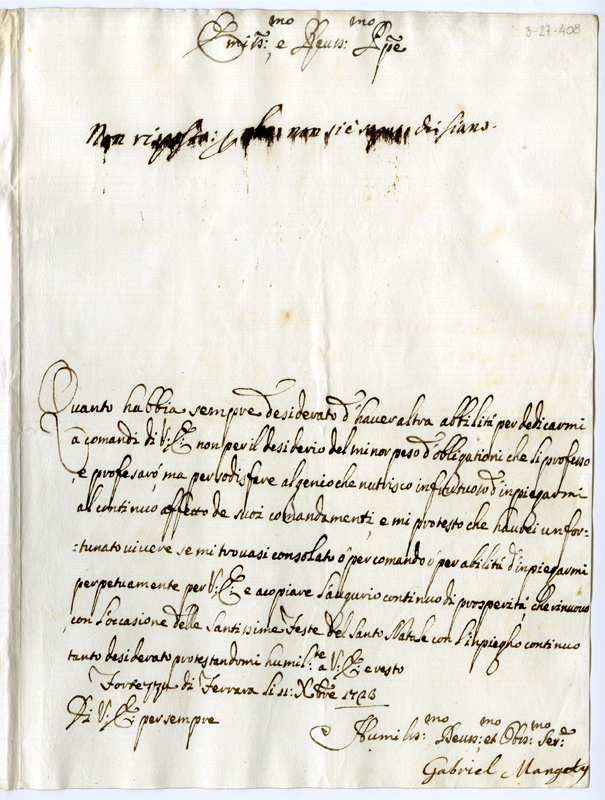 3-27-408
Emin:mo, e Reuer:mo Ppe
Non risposta: non si è diʃiano.
Quanto habbia sempre desiderato d'hauer altra abbilità per dedicarmi
a comandi di V:E: non per il desiderio del minor peso d'obligationi che li professo
e profesarò, ma per sodisfare al genio che nutrisco infrutuoso d'inpiegarmi
al continuo affetto de suoi comandamenti, e mi protesto che haurei un for-
:tunato viuere se mi trouasi consolato ó per comando ó per abilità d'inpiegarmi
perpetuamente per V:E: e acopiare l'augurio continuo di prosperità, che rinuouo
con l'occasione delle Santissime Feste del Santo Natale con l'inpiegho continuo
tanto desiderato protestandomi humil:te a V:E: e resto
Fortezza di Ferrara li 11: Xbre 1723
Di V:E: per sempre
Humilis:mo Deuis:mo et Oblis:mo Ser:e
Gabriel